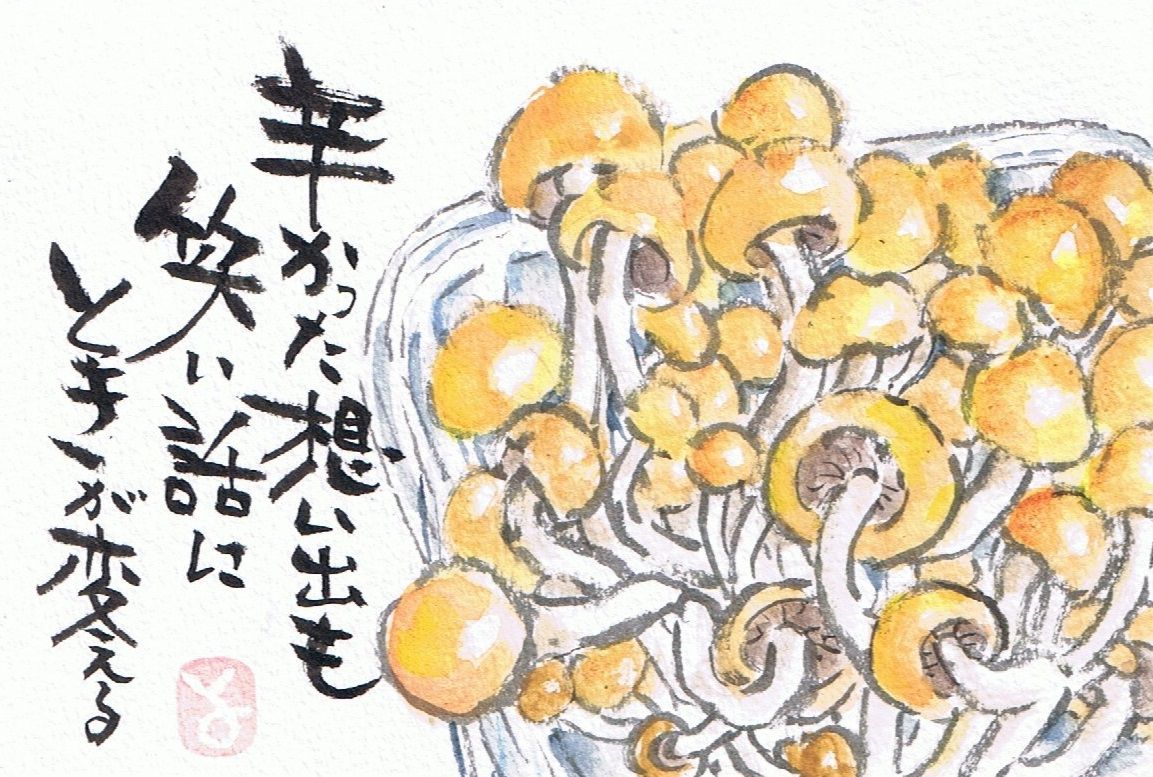 辛かった想い出も
笑い話に
ときが変える
とよ